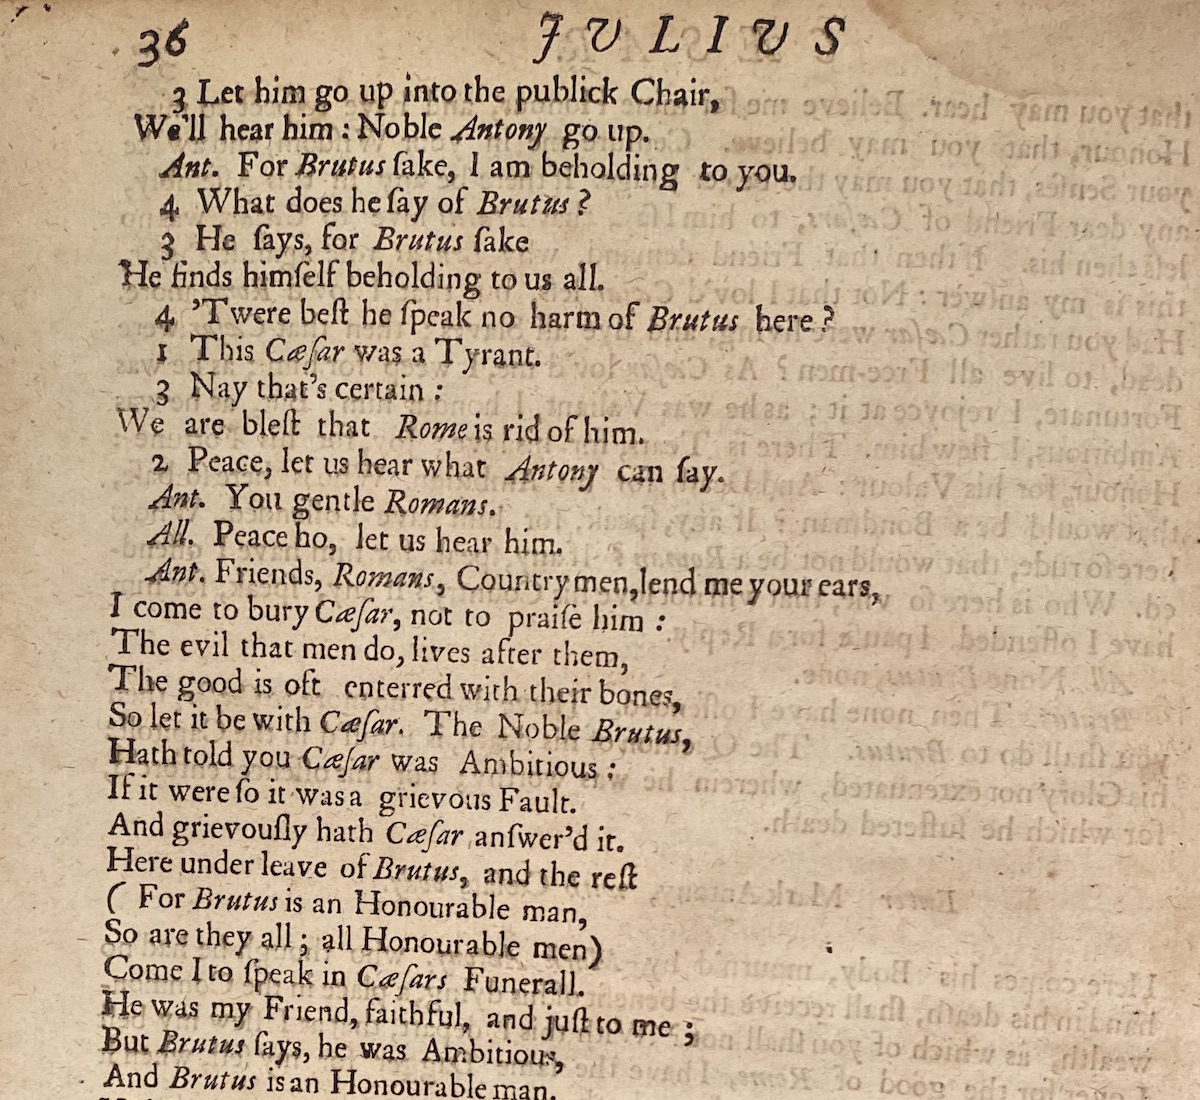 36 JULIUS
3 Let him go up into the publick Chair,
We'll hear him : Noble Antony go up.
Ant. For Brutus ſake, I am beholding to you.
4 What does he ſay of Brutus ?
3 He ſays, for Brutus ſake
He finds himſelf beholding to us all.
4 'Twere beſt he ſpeak no harm of Brutus here ?
1 This Cæſar was a Tyrant.
3 Nay that's certain :
We are bleſt that Rome is rid of him.
2 Peace, let us hear what Antony can ſay.
Ant. You gentle Romans.
All. Peace ho, let us hear him.
Ant. Friends, Romans, Countrymen, lend me your ears,
I come to bury Cæſar, not to praiſe him :
The evil that men do, lives after them,
The good is oft enterred with their bones,
So let it be with Cæſar. The Noble Brutus,
Hath told you Cæſar was Ambitious ;
If it were ſo it was a grievous Fault.
And grievouſly hath Cæſar anſwer'd it.
Here under leave of Brutus, and the reſt
( For Brutus is an Honourable man,
So are they all ; all Honourable men)
Come I to ſpeak in Cæſars Funerall.
He was my Friend, faithful, and juſt to me ;
But Brutus ſays, he was Ambitious,
And Brutus is an Honourable man.